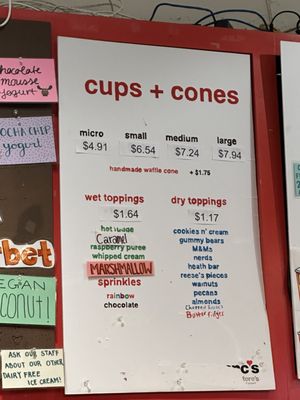 chocolate
mousse
yogurt
MOCHA CHIP
yogurt
rbet
VEGAN
COCONUT!
ASK OUR STAFF
ABOUT OUR OTHER
DAIRY FREE
ICE CREAM!
cups + cones
micro small medium large
$4.91 $6.54 $7.24 $7.94
handmade waffle cone + $1.75
wet toppings
$1.64
hot fudge
Caramel
raspberry puree
whipped cream
MARSHMALLOW
sprinkles
rainbow
chocolate
dry toppings
$1.17
cookies n' cream
gummy bears
M&Ms
nerds
heath bar
reese's pieces
walnuts
pecans
almonds
Butterfinger